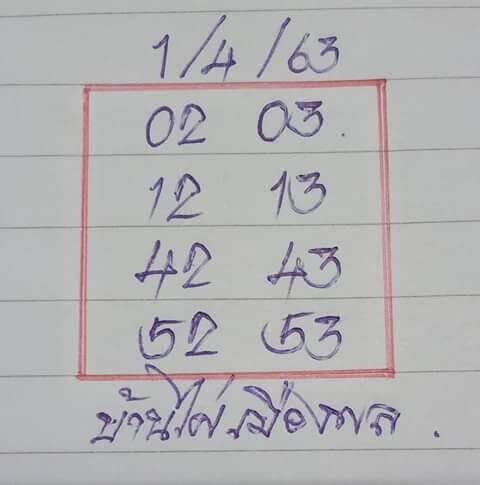 1/4/63
02 03.
12 13
42 43
52 53
บ้านไผ่เมืองพล.